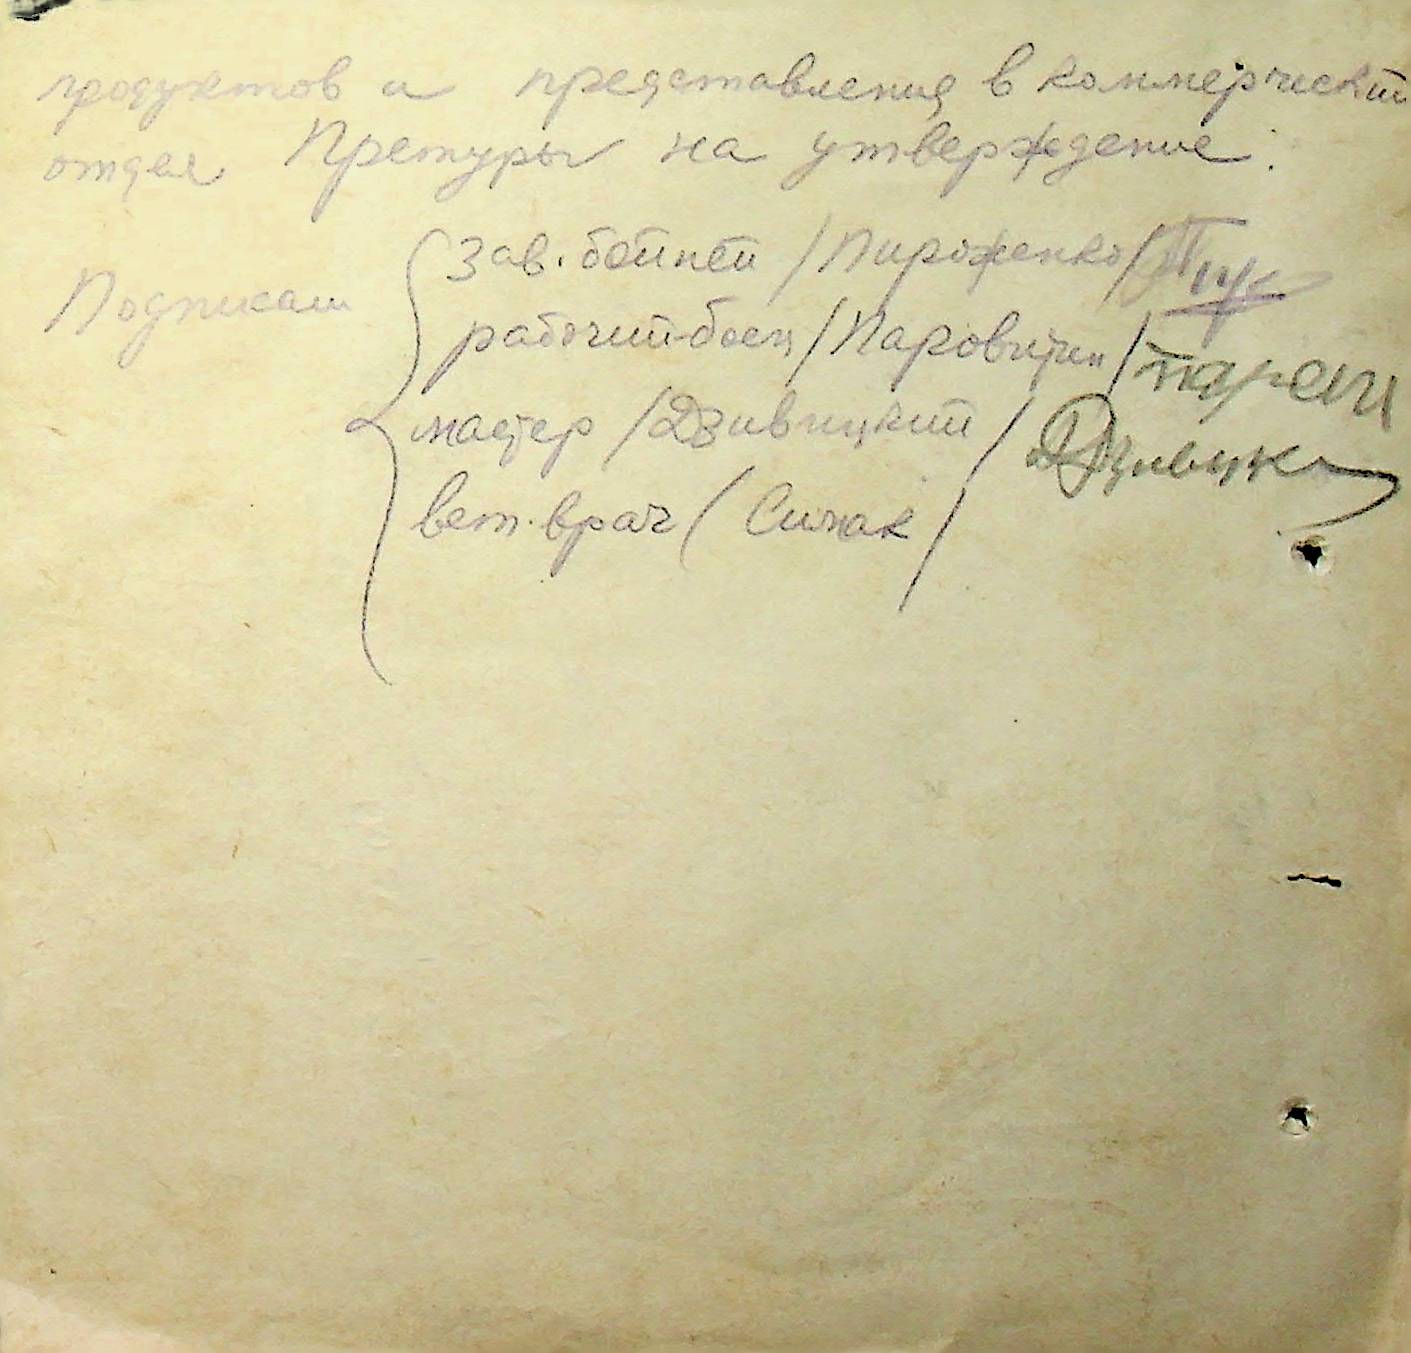 продуктов и представления в коммерческий
отдел Претуры на утверждение.
Подписали
Зав. бойней /Пироженко/
рабочий-боец /Паровитин/
мастер /Дзивицкий/ Дзивицк
вет. врач (Симак/